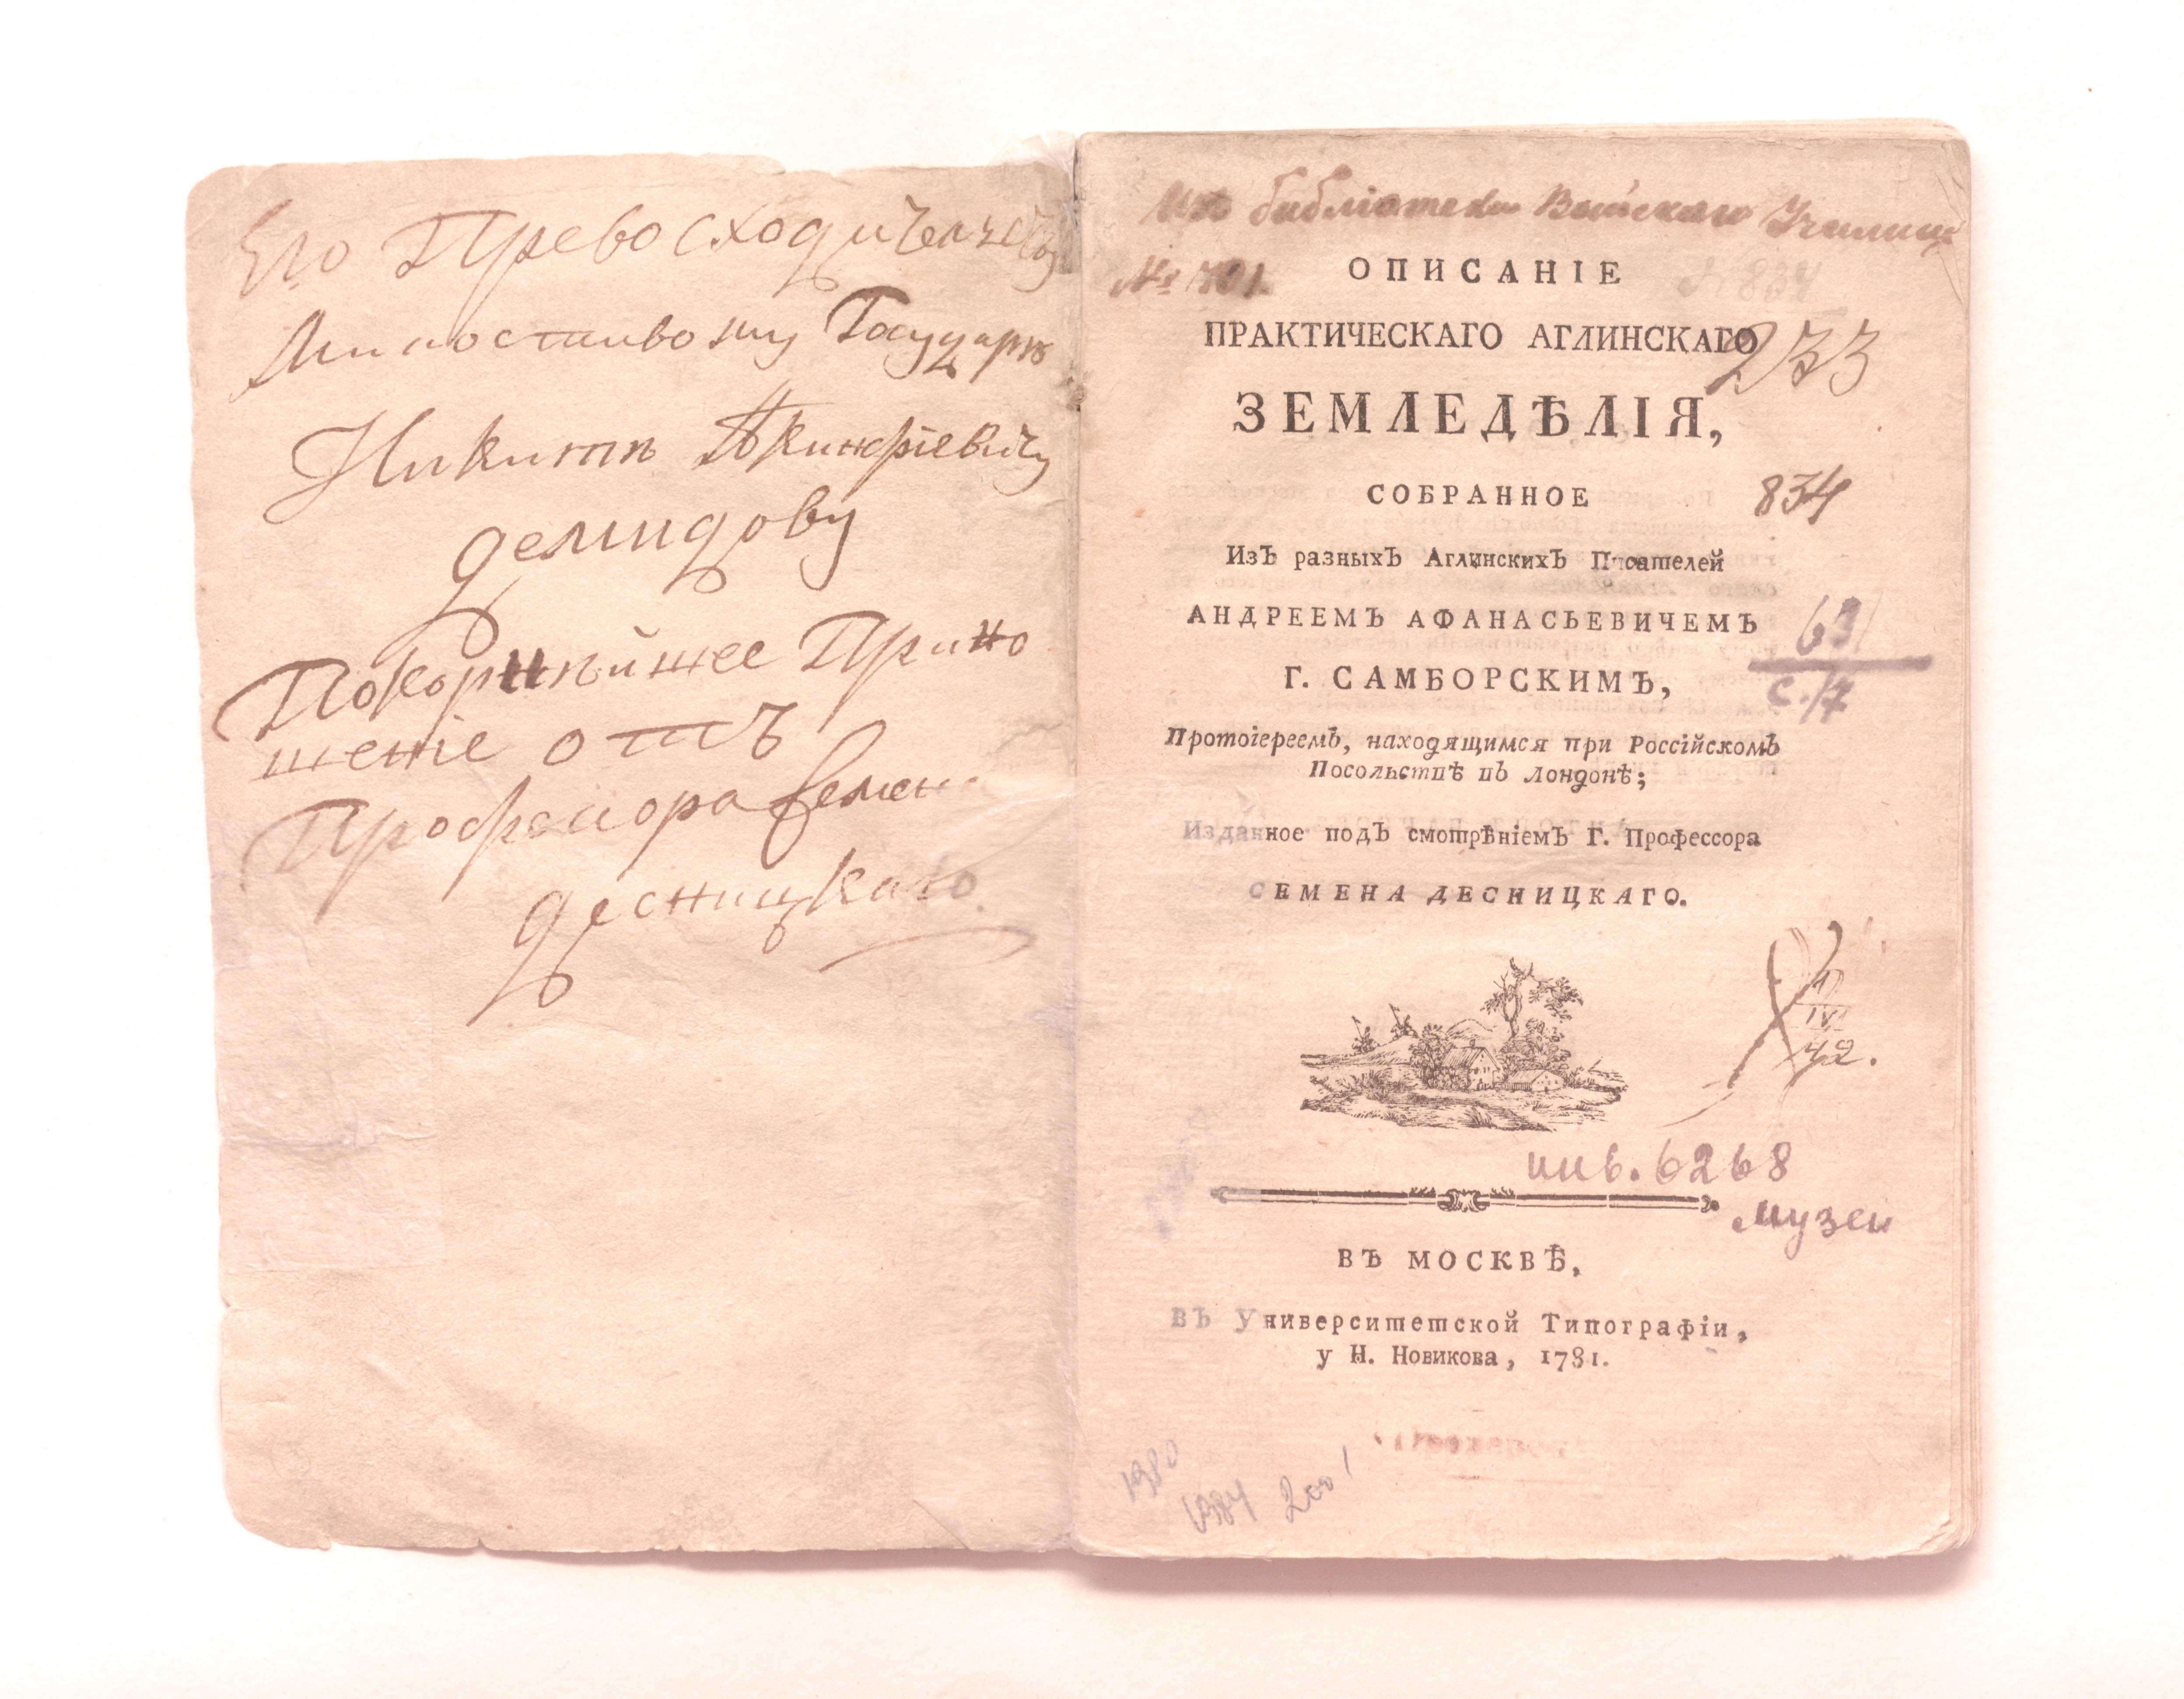 Его Превосходительству
Милостивому Государю
Никитѣ Акинфіевичу
Демидову
Покорнѣйшее Прино
шеніе отъ
Профессора Семена
Десницкаго.
Изъ библіотеки Училища
№ 701.
ОПИСАНІЕ
№ 834
ПРАКТИЧЕСКАГО АГЛИНСКАГО
233
ЗЕМЛЕДѢЛІЯ,
СОБРАННОЕ
834
Изъ разныхъ Аглинскихъ Писателей
АНДРЕЕМЪ АФАНАСЬЕВИЧЕМЪ
63
Г. САМБОРСКИМЪ,
С.17
Протоіереемъ, находящимся при Россійскомъ
Посольствѣ въ Лондонѣ;
Изданное подъ смотрѣніемъ Г. Профессора
СЕМЕНА ДЕСНИЦКАГО.
IV
42.
инв. 6268
музей
ВЪ МОСКВѢ,
Въ Университетской Типографіи,
у Н. Новикова, 1781.
1980
1984 2001